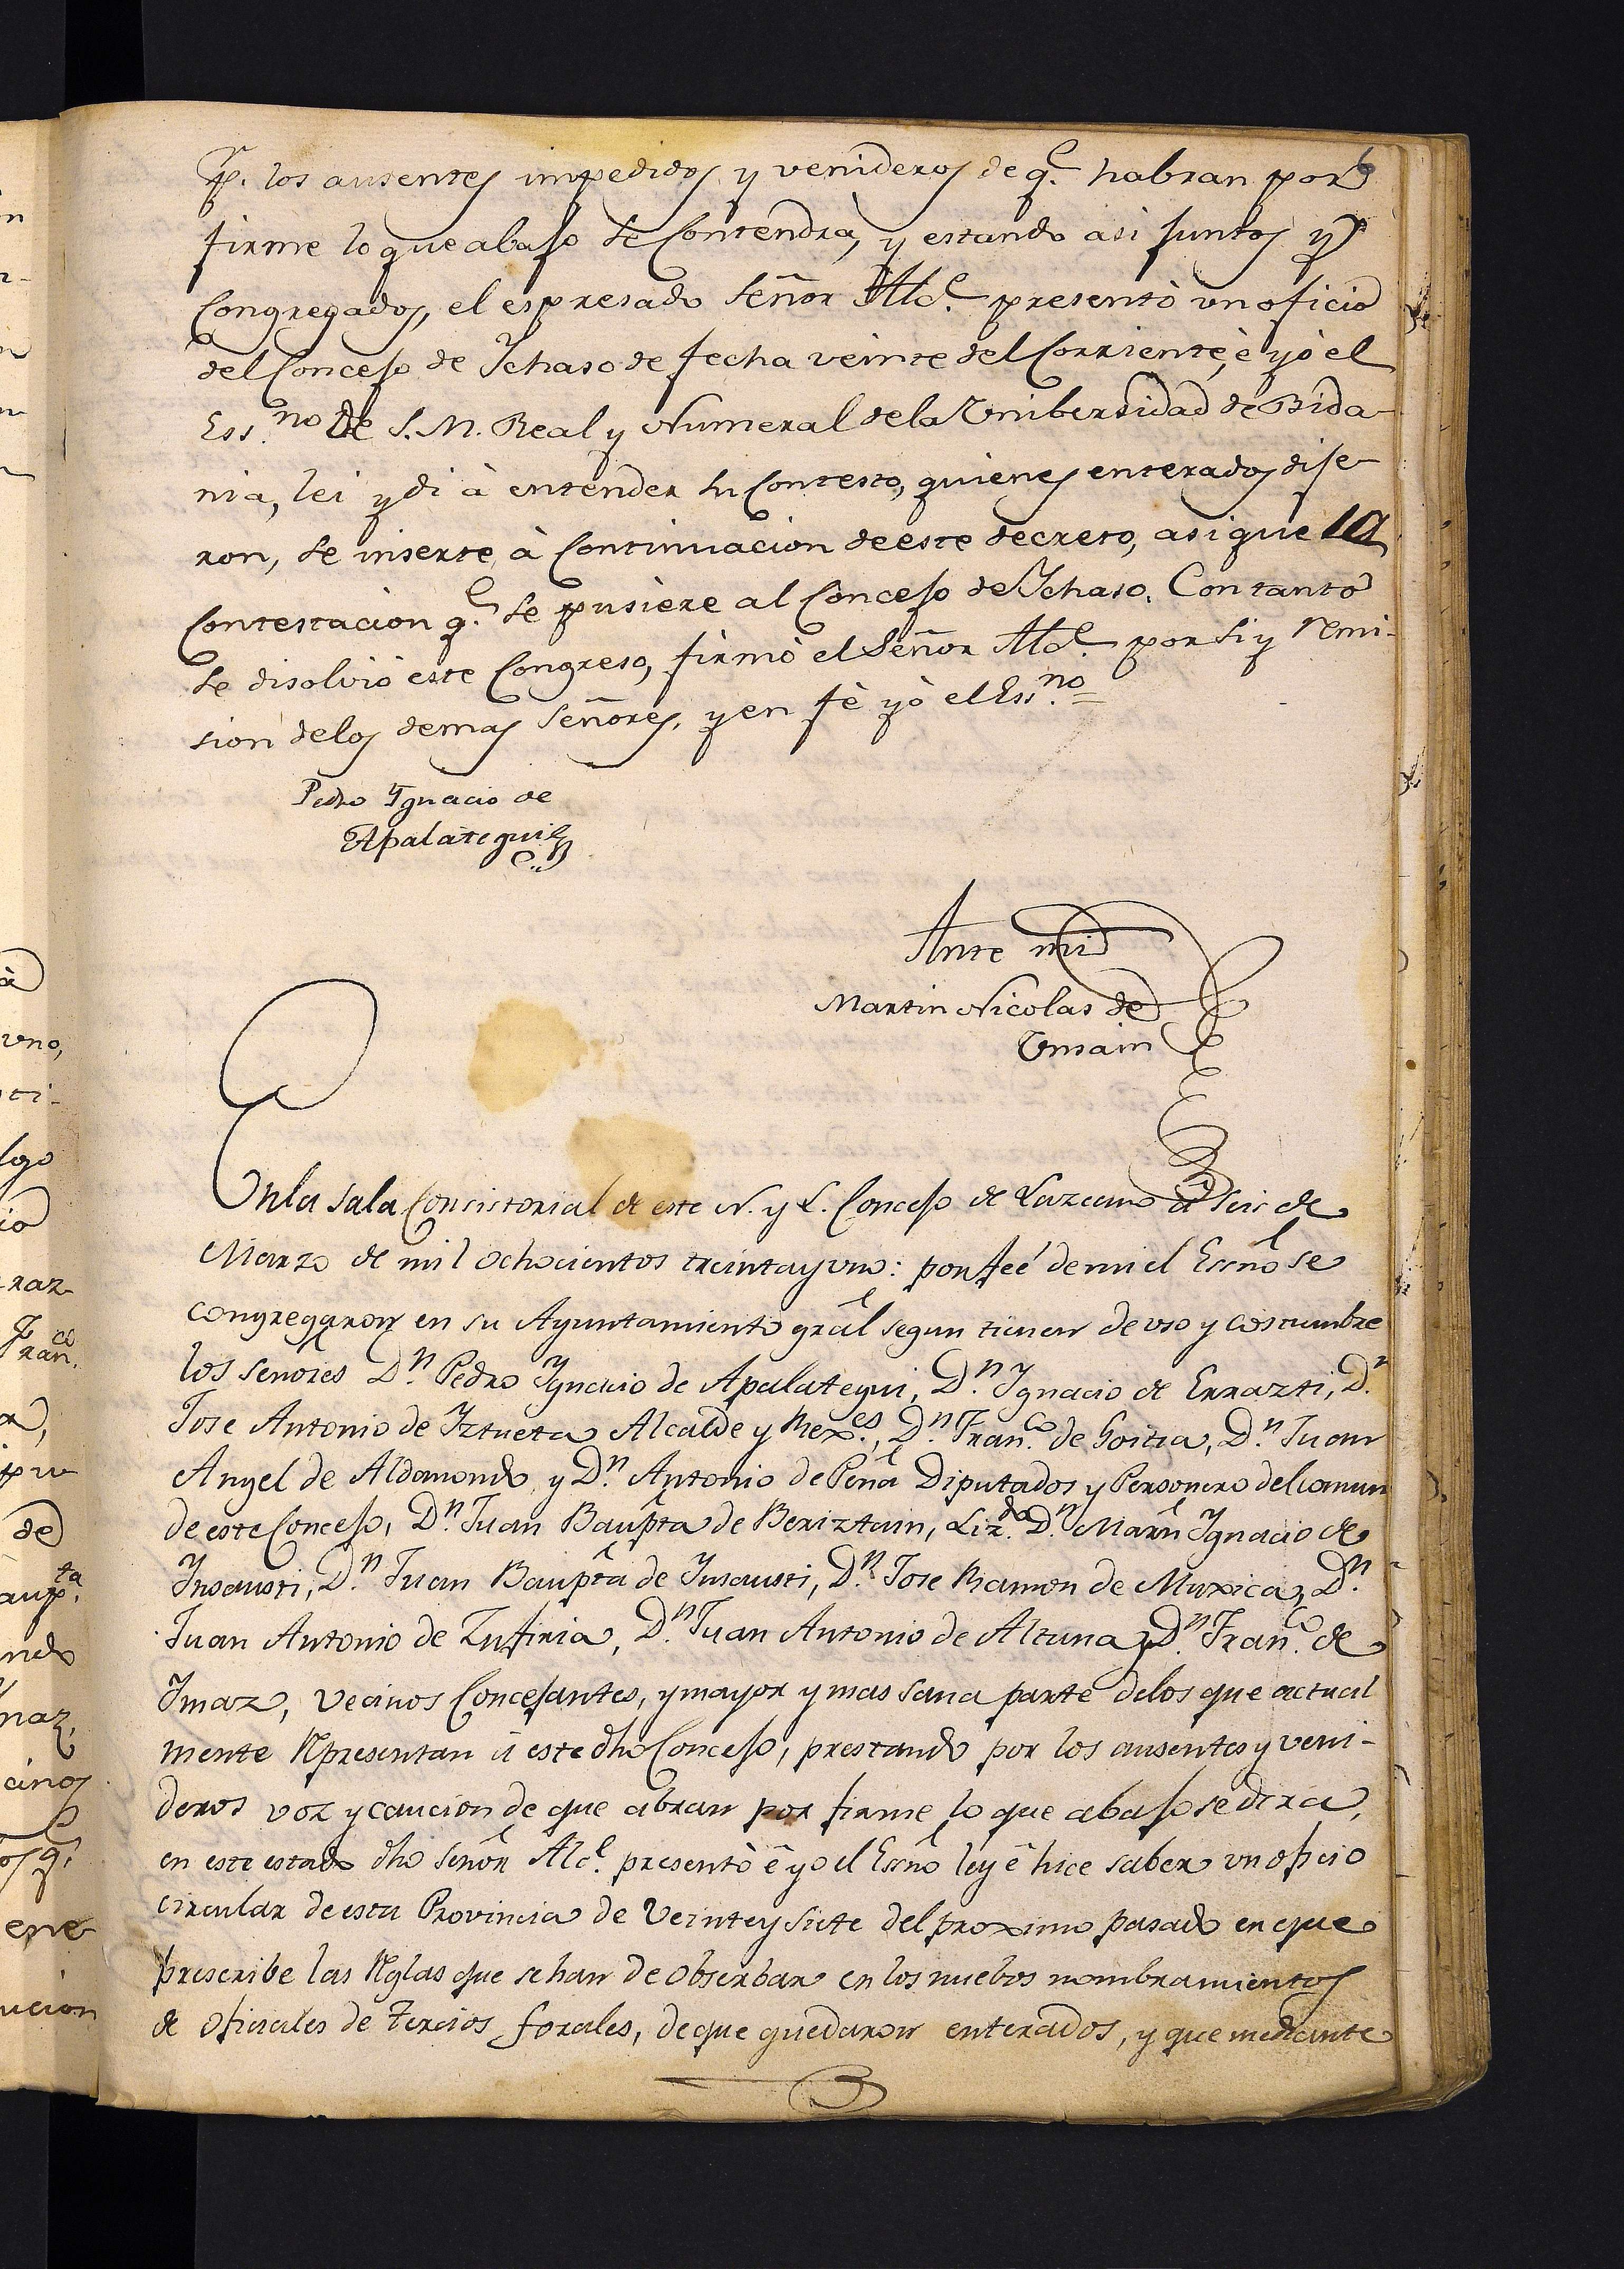 p. los ausentes impedidos y venideros de q.e habran por
firme lo que abajo se Contendrà, y estando asi juntos y
Congregados, el espresado Señor Alc.e presentò un oficio
del Concejo de Ychaso de fecha veinte del Corriente, è yò el
Ess.no de S. M. Real y Numeral de la Unibersidad de Bida-
nia, lei y di à entender su Contesto, quienes enterados dije-
ron, se inserte à Continuacion de este decreto, asi que la
Contestacion q.e se pusiere al Concejo de Ychaso. Con tanto
se disolviò este Congreso, firmò el Señor Alc.e por si y remi-
sion de los demas Señores, y en fè yò el Ess.no =
Pedro Ygnacio de
Apalategui
Ante mi
Martin Nicolas de
Unsain
En la sala Consistorial de este N. y L. Concejo de Lazcano à seis de
Marzo de mil ochocientos treinta y uno: por feé de mi el Essno se
congregaron en su Ayuntamiento gral segun tienen de uso y costumbre
los señores D.n Pedro Ygnacio de Apalategui, D.n Ygnacio de Errazti, D.n
Jose Antonio de Yztueta Alcalde y Rex.es, D.n Fran.co de Goitia, D.n Juan
Angel de Aldamondo y D.n Antonio de Peña Diputados y Personero del comun
de este Concejo, D.n Juan Baupta de Beriztain, Liz.do D.n Marn Ygnacio de
Ynsausti, D.n Juan Baupta de Ynsausti, D.n Jose Ramon de Muxica, D.n
Juan Antonio de Zufiria, D.n Juan Antonio de Altuna y D.n Fran.co de
Ymaz, vecinos Concejantes, y mayor y mas sana parte de los que actual
mente Representan à este dho Concejo, prestando por los ausentes y veni-
deros voz y caucion de que abran por firme lo que abajo se dira,
en este estado dho Señor Alc.e presentò è yo el Essno ley è hice saber un oficio
circular de esta Provincia de Veinte y siete del proximo pasado en que
prescribe las Reglas que se han de obserbar en los nuebos nombramientos
de oficiales de Tercios forales, de que quedaron enterados, y que mediante